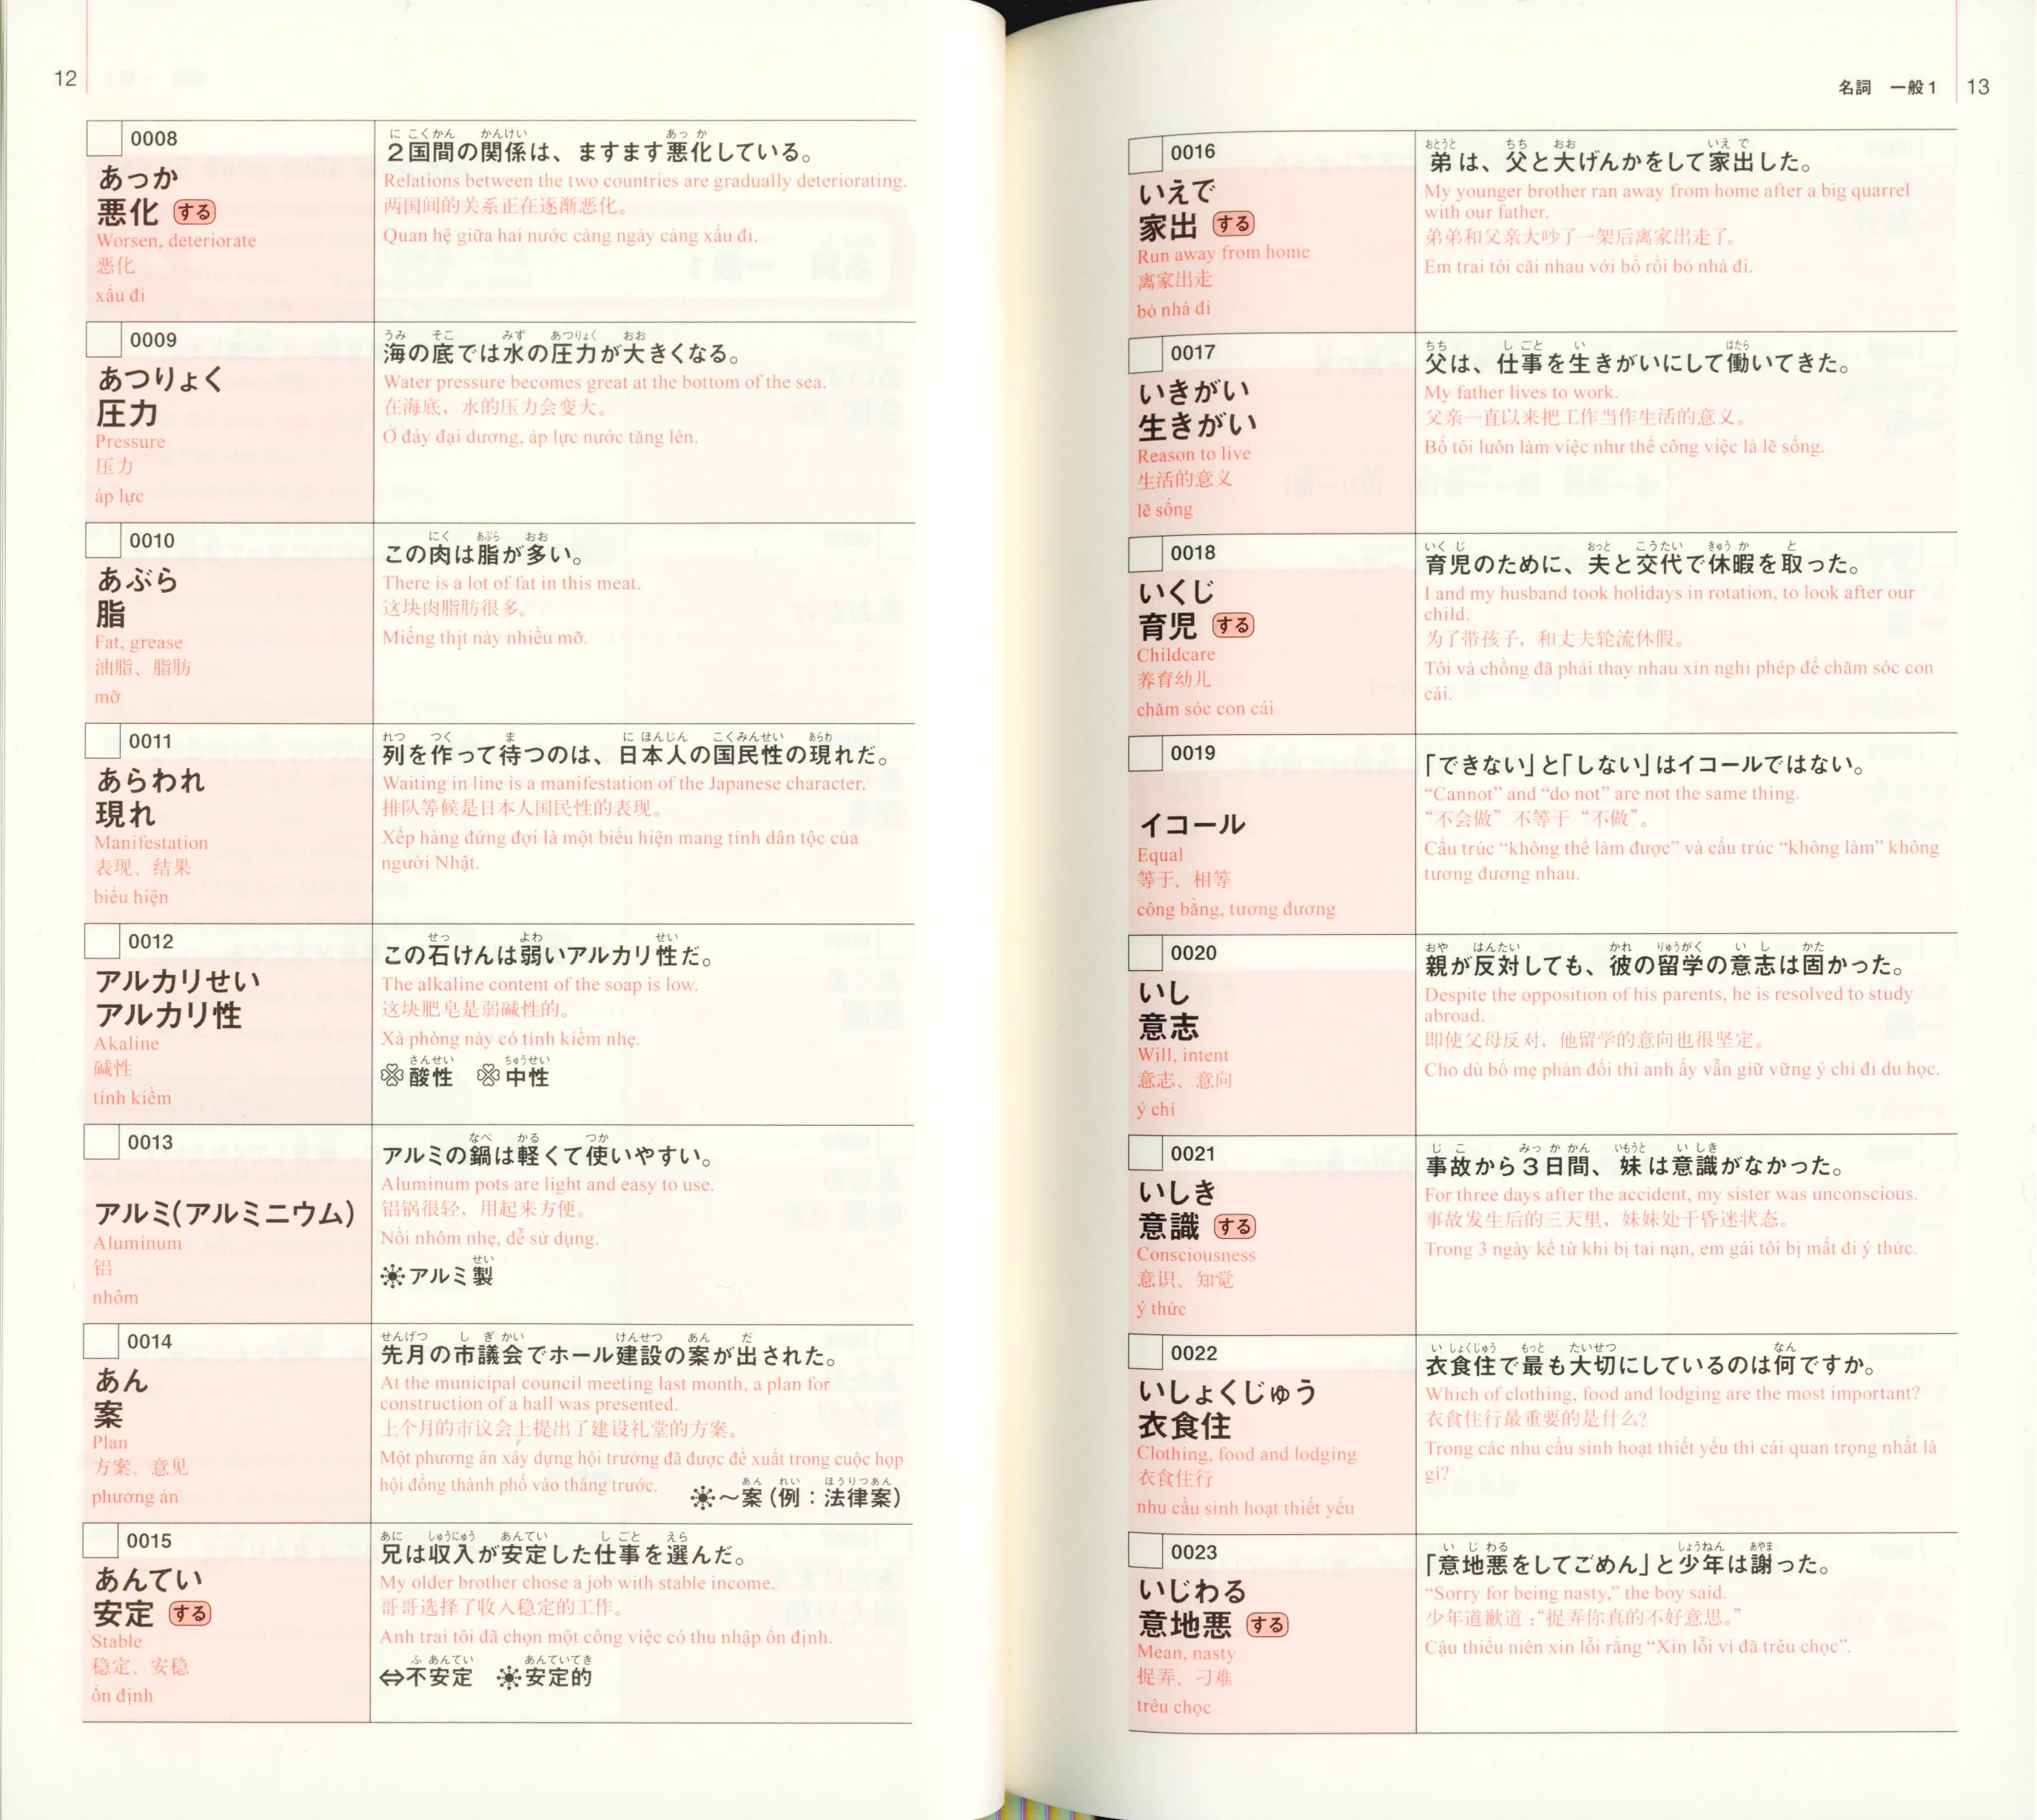 12
0008
あっか
悪化 する
Worsen, deteriorate
恶化
xấu đi
に こくかん かんけい あっ か
2国間の関係は、ますます悪化している。
Relations between the two countries are gradually deteriorating.
两国间的关系正在逐渐恶化。
Quan hệ giữa hai nước càng ngày càng xấu đi.
0009
あつりょく
圧力
Pressure
压力
áp lực
うみ そこ みず あつりょく おお
海の底では水の圧力が大きくなる。
Water pressure becomes great at the bottom of the sea.
在海底，水的压力会变大。
Ở đáy đại dương, áp lực nước tăng lên.
0010
あぶら
脂
Fat, grease
油脂、脂肪
mỡ
にく あぶら おお
この肉は脂が多い。
There is a lot of fat in this meat.
这块肉脂肪很多。
Miếng thịt này nhiều mỡ.
0011
あらわれ
現れ
Manifestation
表现、结果
biểu hiện
れつ つく ま に ほんじん こくみんせい あらわ
列を作って待つのは、日本人の国民性の現れだ。
Waiting in line is a manifestation of the Japanese character.
排队等候是日本人国民性的表现。
Xếp hàng đứng đợi là một biểu hiện mang tính dân tộc của
người Nhật.
0012
アルカリせい
アルカリ性
Akaline
碱性
tính kiềm
せっ よわ せい
この石けんは弱いアルカリ性だ。
The alkaline content of the soap is low.
这块肥皂是弱碱性的。
Xà phòng này có tính kiềm nhẹ.
さんせい ちゅうせい
酸性 中性
0013
アルミ(アルミニウム)
Aluminum
铝
nhôm
なべ かる つか
アルミの鍋は軽くて使いやすい。
Aluminum pots are light and easy to use.
铝锅很轻，用起来方便。
Nồi nhôm nhẹ, dễ sử dụng.
せい
アルミ製
0014
あん
案
Plan
方案、意见
phương án
せんげつ し ぎ かい けんせつ あん だ
先月の市議会でホール建設の案が出された。
At the municipal council meeting last month, a plan for
construction of a hall was presented.
上个月的市议会上提出了建设礼堂的方案。
Một phương án xây dựng hội trường đã được đề xuất trong cuộc họp
hội đồng thành phố vào tháng trước.
あん れい ほうりつあん
～案(例：法律案)
0015
あんてい
安定 する
Stable
稳定、安稳
ổn định
あに しゅうにゅう あんてい し ごと えら
兄は収入が安定した仕事を選んだ。
My older brother chose a job with stable income.
哥哥选择了收入稳定的工作。
Anh trai tôi đã chọn một công việc có thu nhập ổn định.
ふ あんてい あんていてき
⇔不安定 安定的
名詞 一般1 13
0016
いえで
家出 する
Run away from home
离家出走
bỏ nhà đi
おとうと ちち おお いえ で
弟は、父と大げんかをして家出した。
My younger brother ran away from home after a big quarrel
with our father.
弟弟和父亲大吵了一架后离家出走了。
Em trai tôi cãi nhau với bố rồi bỏ nhà đi.
0017
いきがい
生きがい
Reason to live
生活的意义
lẽ sống
ちち し ごと い はたら
父は、仕事を生きがいにして働いてきた。
My father lives to work.
父亲一直以来把工作当作生活的意义。
Bố tôi luôn làm việc như thể công việc là lẽ sống.
0018
いくじ
育児 する
Childcare
养育幼儿
chăm sóc con cái
いく じ おっと こうたい きゅう か と
育児のために、夫と交代で休暇を取った。
I and my husband took holidays in rotation, to look after our
child.
为了带孩子，和丈夫轮流休假。
Tôi và chồng đã phải thay nhau xin nghỉ phép để chăm sóc con
cái.
0019
イコール
Equal
等于、相等
công bằng, tương đương
「できない」と「しない」はイコールではない。
“Cannot” and “do not” are not the same thing.
“不会做” 不等于 “不做”。
Cấu trúc “không thể làm được” và cấu trúc “không làm” không
tương đương nhau.
0020
いし
意志
Will, intent
意志、意向
ý chí
おや はんたい かれ りゅうがく い し かた
親が反対しても、彼の留学の意志は固かった。
Despite the opposition of his parents, he is resolved to study
abroad.
即使父母反对，他留学的意向也很坚定。
Cho dù bố mẹ phản đối thì anh ấy vẫn giữ vững ý chí đi du học.
0021
いしき
意識 する
Consciousness
意识、知觉
ý thức
じ こ みっ か かん いもうと い しき
事故から3日間、妹は意識がなかった。
For three days after the accident, my sister was unconscious.
事故发生后的三天里，妹妹处于昏迷状态。
Trong 3 ngày kể từ khi bị tai nạn, em gái tôi bị mất đi ý thức.
0022
いしょくじゅう
衣食住
Clothing, food and lodging
衣食住行
nhu cầu sinh hoạt thiết yếu
い しょくじゅう もっと たいせつ なん
衣食住で最も大切にしているのは何ですか。
Which of clothing, food and lodging are the most important?
衣食住行最重要的是什么?
Trong các nhu cầu sinh hoạt thiết yếu thì cái quan trọng nhất là
gì?
0023
いじわる
意地悪 する
Mean, nasty
捉弄、刁难
trêu chọc
い じ わる しょうねん あやま
「意地悪をしてごめん」と少年は謝った。
“Sorry for being nasty,” the boy said.
少年道歉道：“捉弄你真的不好意思。”
Cậu thiếu niên xin lỗi rằng “Xin lỗi vì đã trêu chọc”.